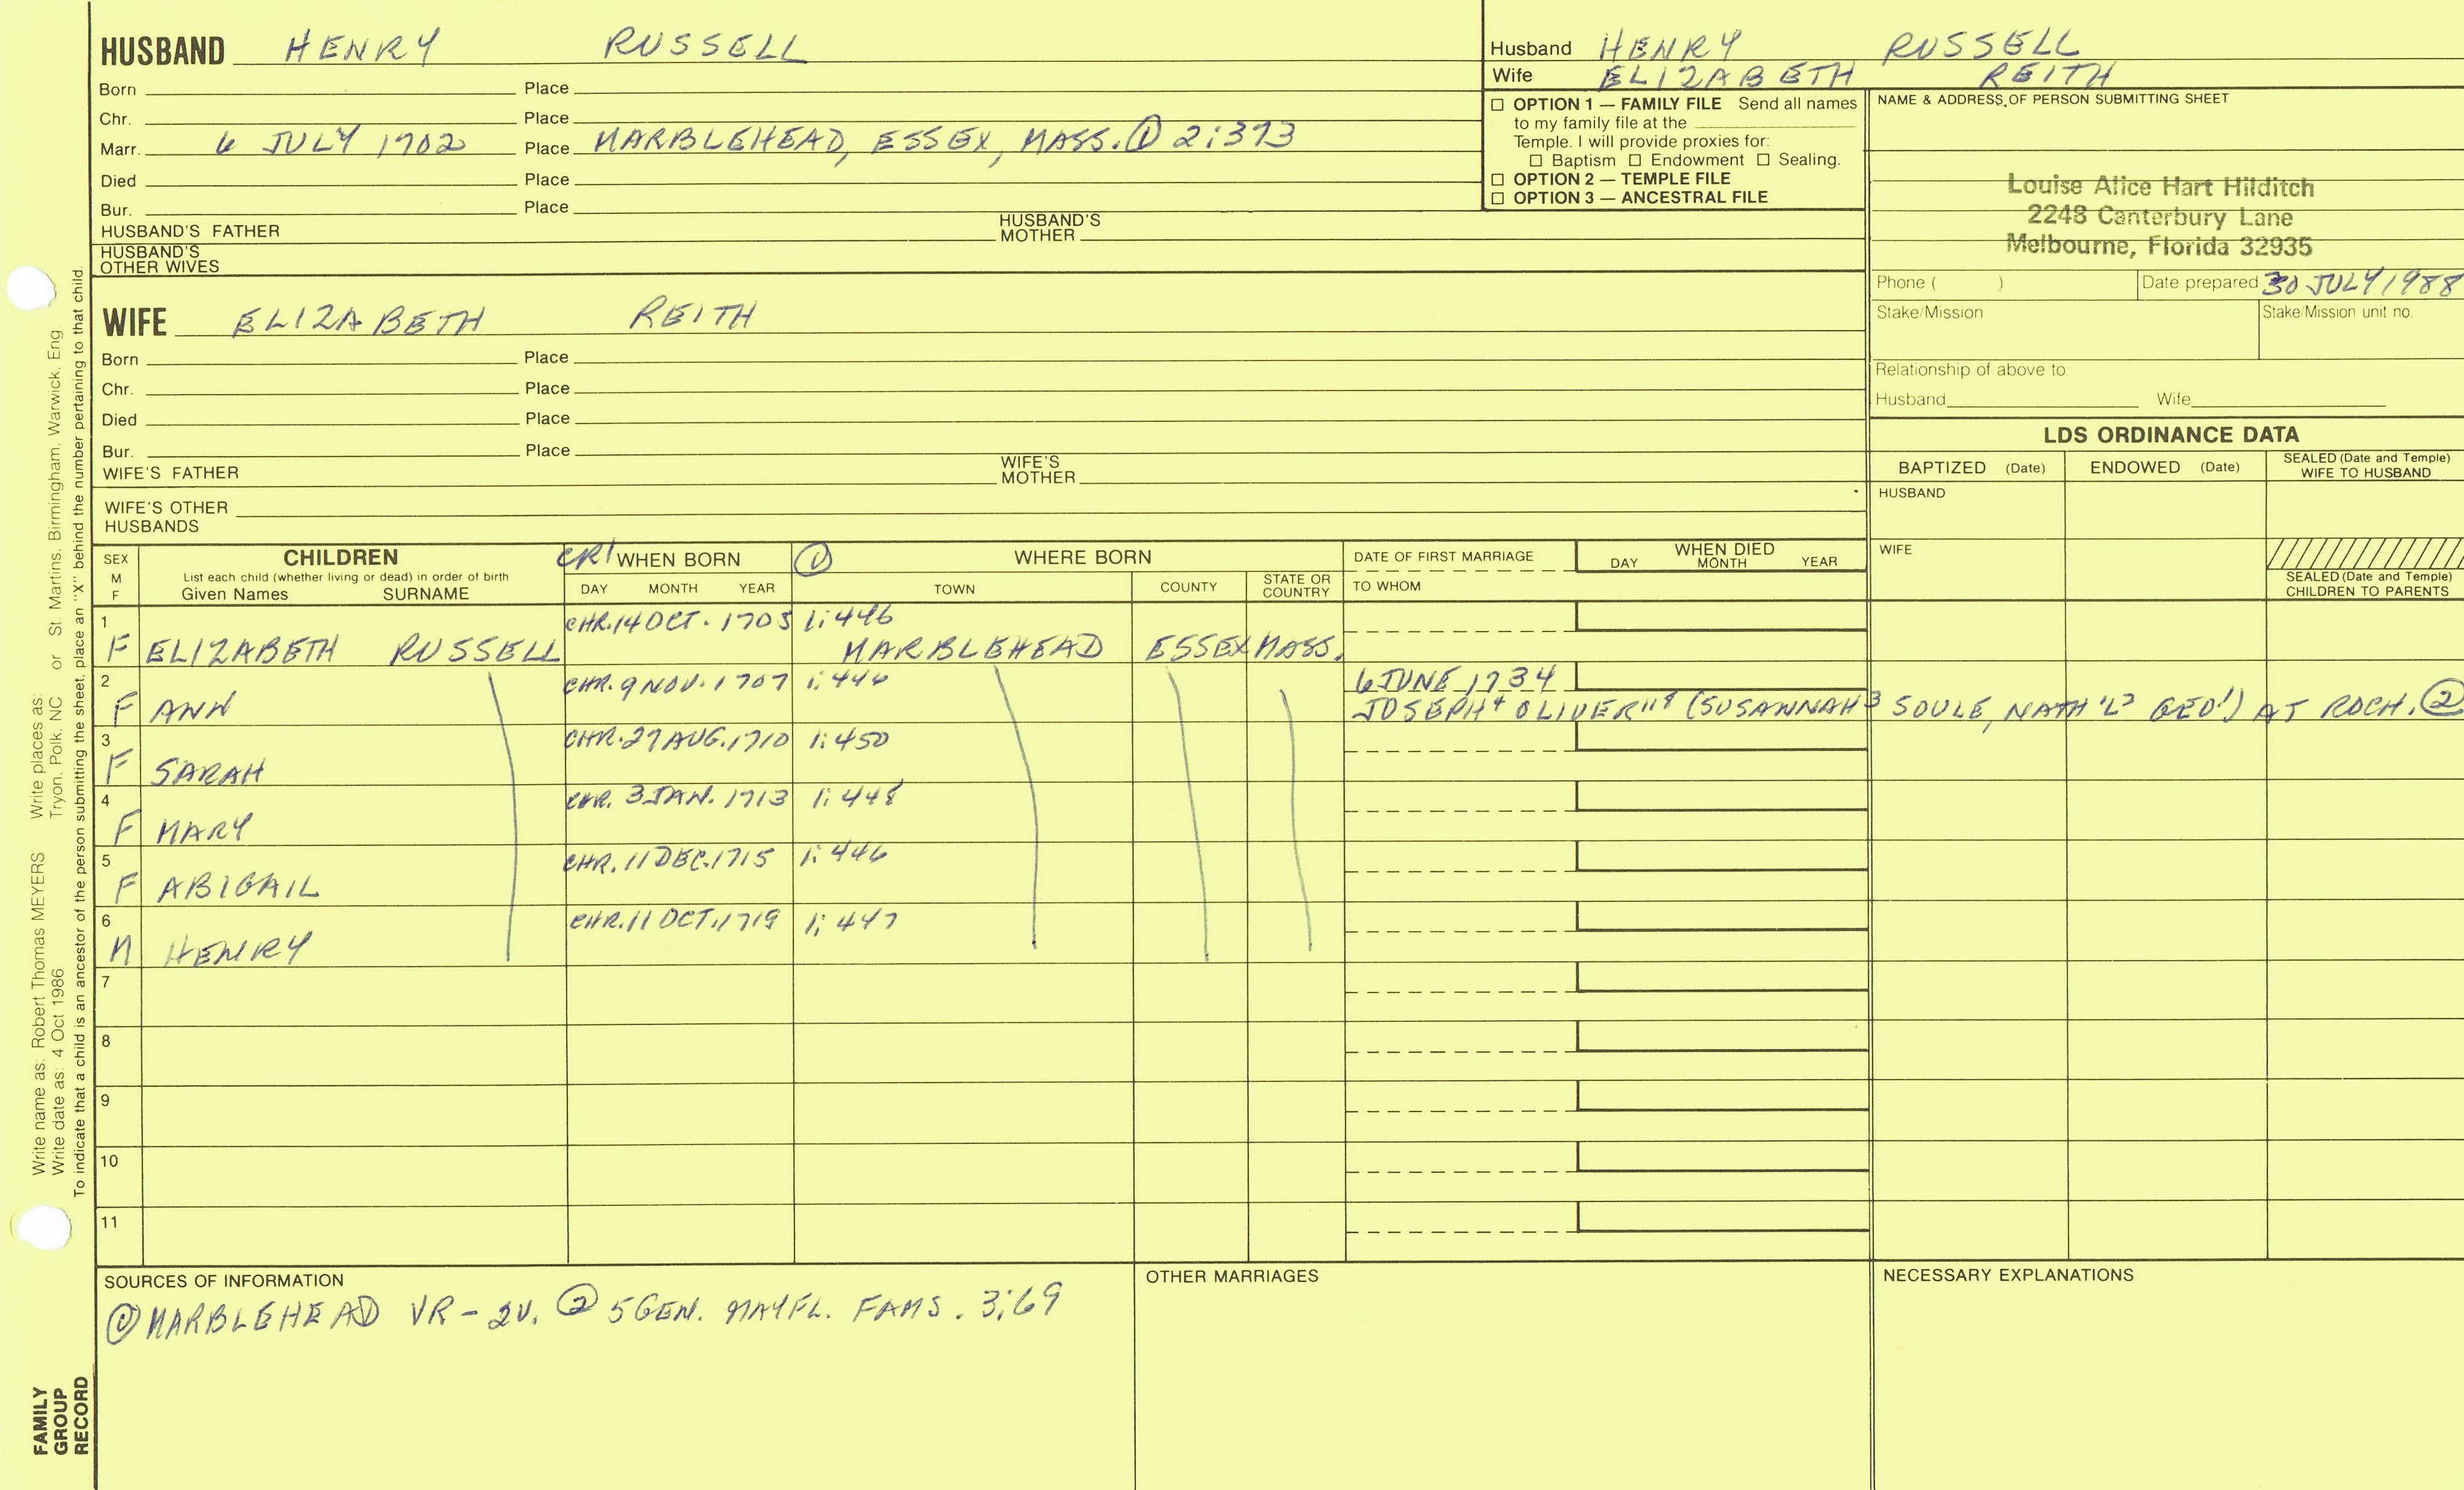 HUSBAND HENRY RUSSELL
Born Place
Chr. Place
Marr. 6 JULY 1702 Place MARBLEHEAD, ESSEX, MASS. ① 2:373
Died Place
Bur. Place
HUSBAND'S FATHER HUSBAND'S MOTHER
HUSBAND'S OTHER WIVES
Husband HENRY RUSSELL
Wife ELIZABETH REITH
☐ OPTION 1 — FAMILY FILE Send all names
to my family file at the
Temple. I will provide proxies for:
☐ Baptism ☐ Endowment ☐ Sealing.
☐ OPTION 2 — TEMPLE FILE
☐ OPTION 3 — ANCESTRAL FILE
NAME & ADDRESS OF PERSON SUBMITTING SHEET
Louise Alice Hart Hilditch
2248 Canterbury Lane
Melbourne, Florida 32935
Phone ( ) Date prepared 30 JULY 1988
Stake/Mission Stake/Mission unit no.
Relationship of above to:
Husband Wife
WIFE ELIZABETH REITH
Born Place
Chr. Place
Died Place
Bur. Place
WIFE'S FATHER WIFE'S MOTHER
WIFE'S OTHER HUSBANDS
LDS ORDINANCE DATA
BAPTIZED (Date) ENDOWED (Date) SEALED (Date and Temple) WIFE TO HUSBAND
HUSBAND
WIFE
SEALED (Date and Temple) CHILDREN TO PARENTS
SEX M F CHILDREN CR1 WHEN BORN ① WHERE BORN DATE OF FIRST MARRIAGE WHEN DIED
List each child (whether living or dead) in order of birth
Given Names SURNAME DAY MONTH YEAR TOWN COUNTY STATE OR COUNTRY TO WHOM DAY MONTH YEAR
1 CHR. 14 OCT. 1705 1:446
F ELIZABETH RUSSELL MARBLEHEAD ESSEX MASS.
2 CHR. 9 NOV. 1707 1:446 6 JUNE 1734
F ANN JOSEPH⁴ OLIVER (SUSANNAH³ SOULE, NATH'L² GEO¹) AT ROCH. ②
3 CHR. 27 AUG. 1710 1:450
F SARAH
4 CHR. 3 JAN. 1713 1:448
F MARY
5 CHR. 11 DEC. 1715 1:446
F ABIGAIL
6 CHR. 11 OCT. 1719 1:447
M HENRY
7
8
9
10
11
SOURCES OF INFORMATION
① MARBLEHEAD VR - 2V. ② 5 GEN. MAYFL. FAMS. 3:69
OTHER MARRIAGES
NECESSARY EXPLANATIONS
Write name as: Robert Thomas MEYERS Write places as: or St Martins, Birmingham, Warwick, Eng
Write date as: 4 Oct 1986 Tryon, Polk, NC
To indicate that a child is an ancestor of the person submitting the sheet, place an "X" behind the number pertaining to that child.
FAMILY
GROUP
RECORD